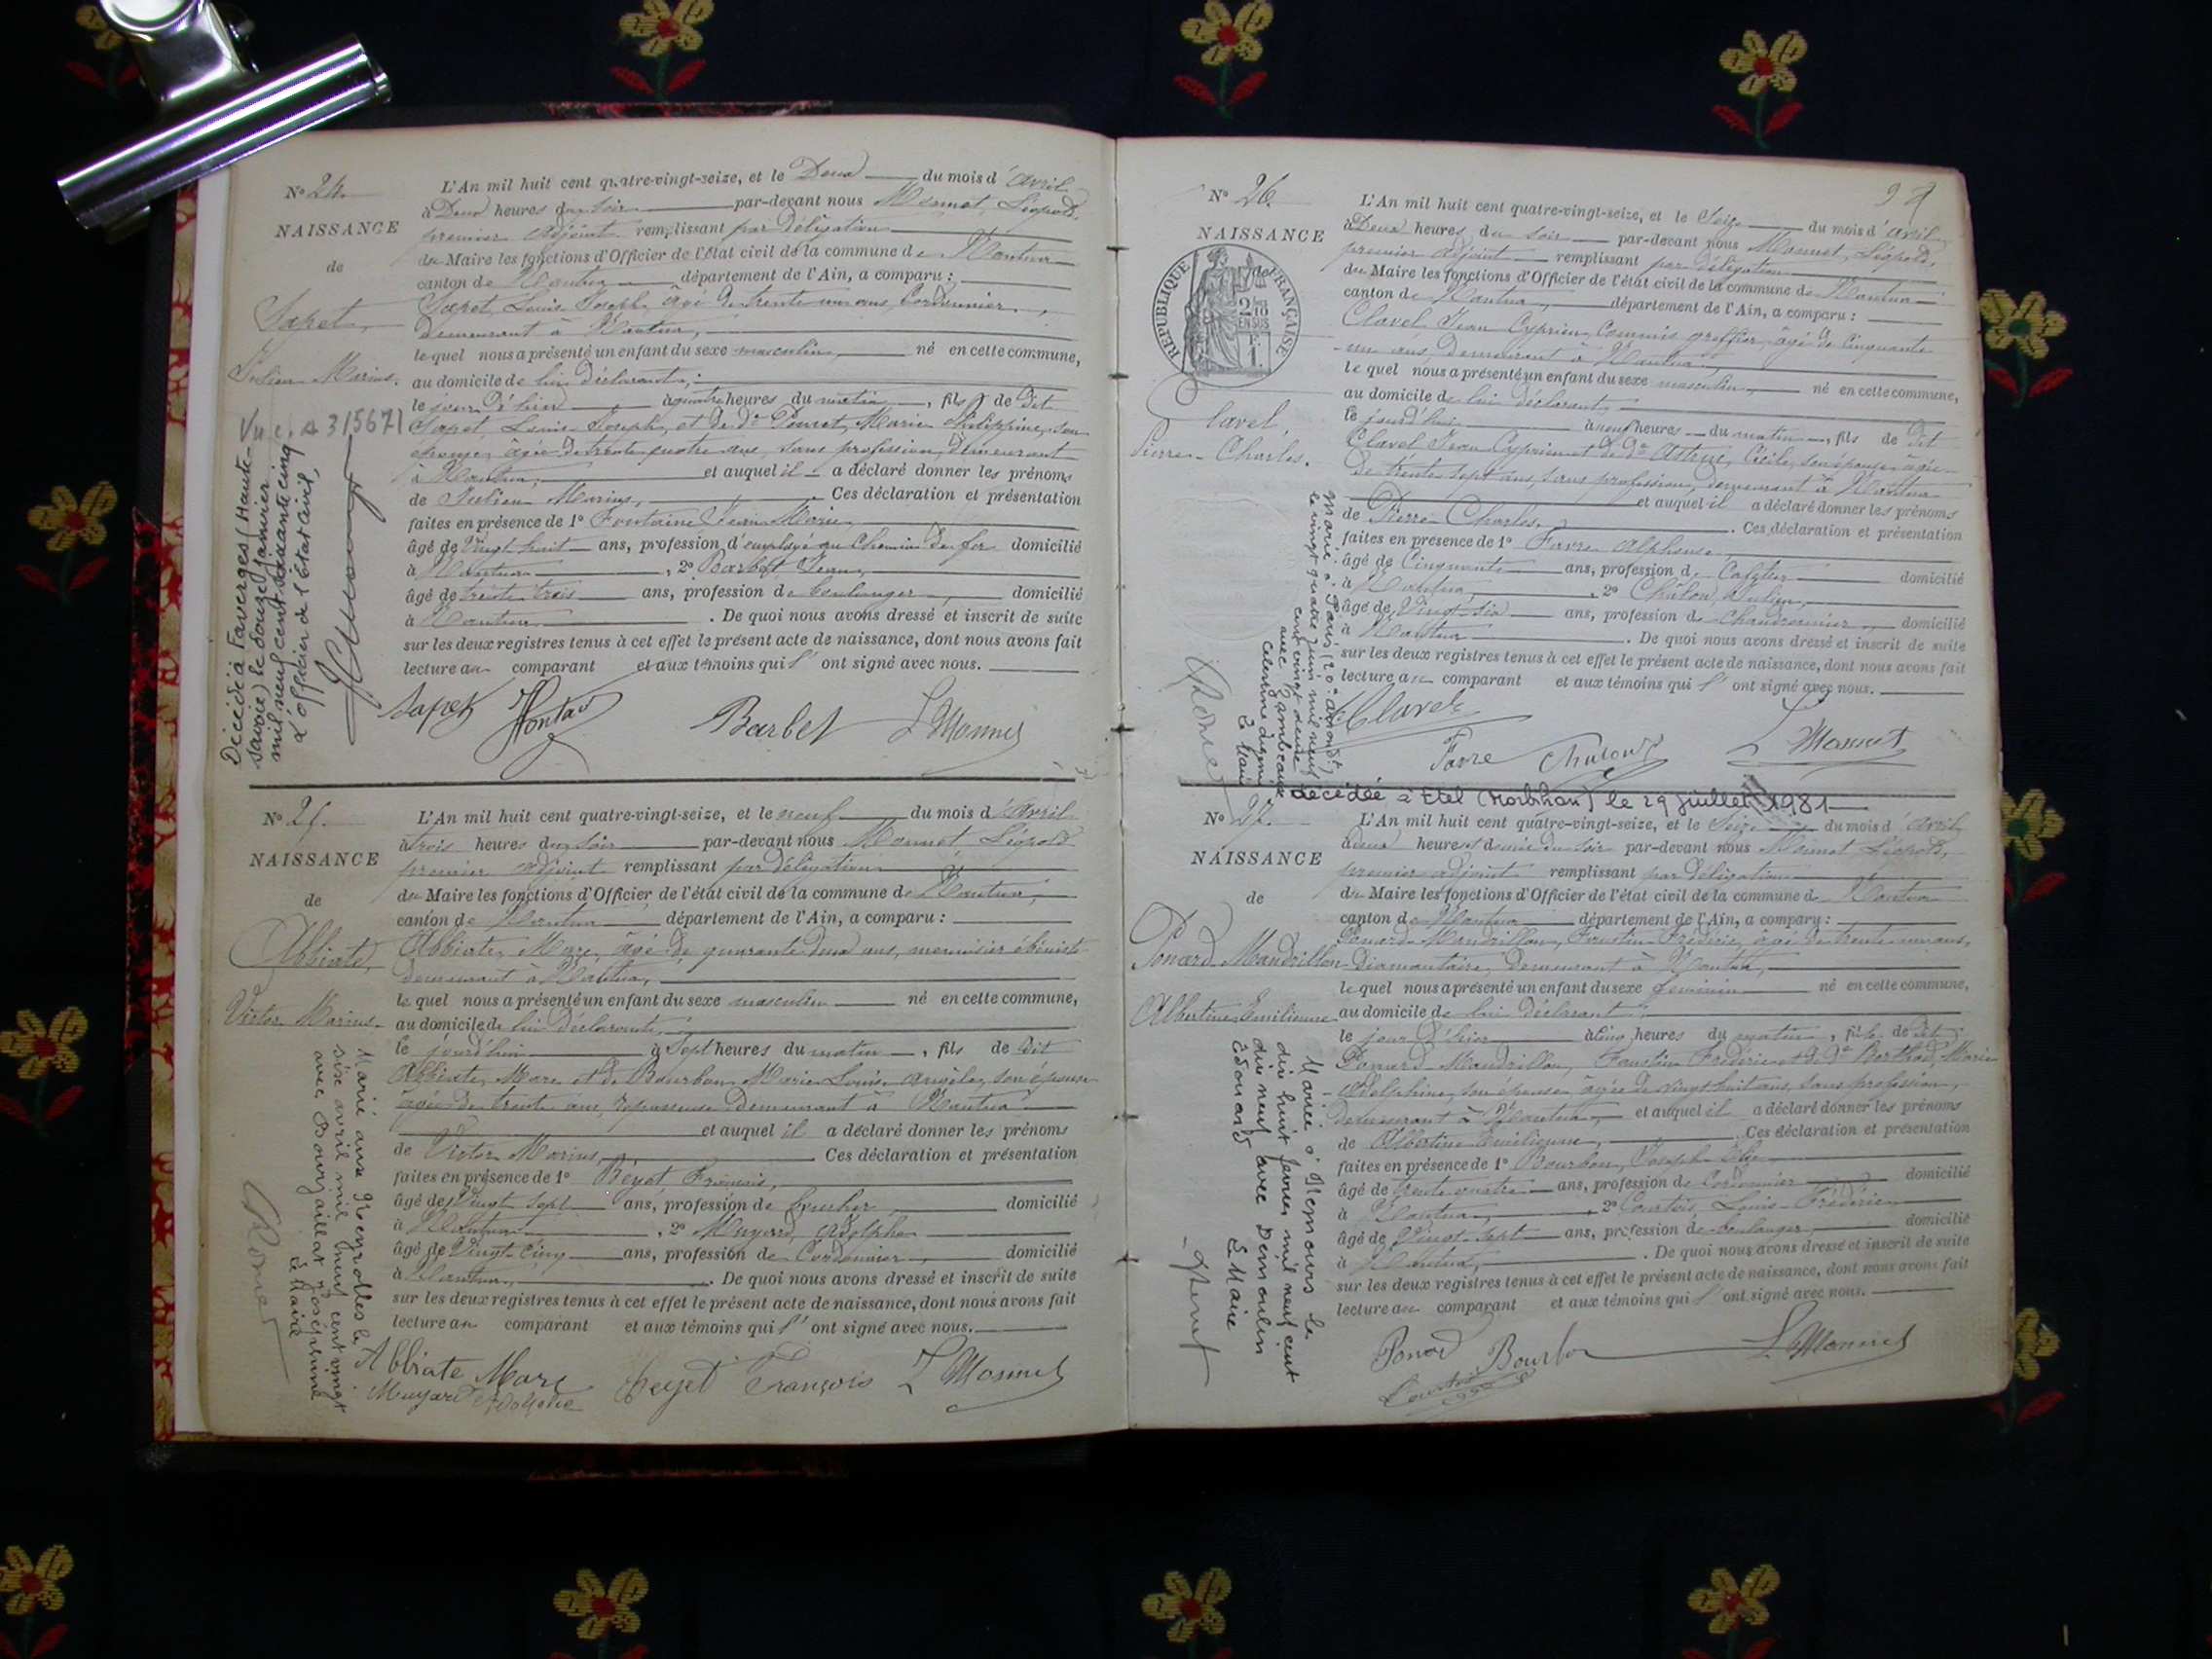 No 24
NAISSANCE
de
Sapet,
Julien Marius.
L'An mil huit cent quatre-vingt-seize, et le Deux du mois d'avril
à Deux heures du soir par-devant nous Monnet, Léopold,
premier adjoint remplissant par délégation
du Maire les fonctions d'Officier de l'état civil de la commune de Nantua
canton de Nantua département de l'Ain, a comparu :
Sapet, Louis Joseph, âgé de trente un ans, Cordonnier,
demeurant à Nantua,
lequel nous a présenté un enfant du sexe masculin, né en cette commune,
au domicile de lui déclarant,
le jour d'hier à quatre heures du matin, fils de dit
Sapet, Louis Joseph, et de De Marie Philippine, son
épouse, âgée de trente quatre ans, sans profession, demeurant
à Nantua, et auquel il a déclaré donner les prénoms
de Julien Marius, Ces déclaration et présentation
faites en présence de 1° Fontaine Jean Marie,
âgé de Vingt huit ans, profession d'employé au Chemin de fer domicilié
à Nantua, 2° Barbet, Jean,
âgé de trente trois ans, profession de boulanger, domicilié
à Nantua. De quoi nous avons dressé et inscrit de suite
sur les deux registres tenus à cet effet le présent acte de naissance, dont nous avons fait
lecture au comparant et aux témoins qui l'ont signé avec nous.
Sapet Barbet L Monnet
Décédé à Faverges (Haute-
Savoie) le douze janvier
mil neuf cent soixante cinq
L'officier de l'état civil,
No 25.
NAISSANCE
de
Abbiate,
Victor Marius.
L'An mil huit cent quatre-vingt-seize, et le neuf du mois d'avril
à trois heures du soir par-devant nous Monnet Léopold
premier adjoint remplissant par délégation
du Maire les fonctions d'Officier de l'état civil de la commune de Nantua,
canton de Nantua département de l'Ain, a comparu :
Abbiate, Marc, âgé de quarante deux ans, menuisier ébéniste
demeurant à Nantua,
lequel nous a présenté un enfant du sexe masculin né en cette commune,
au domicile de lui déclarant,
le jourd'hui à Sept heures du matin, fils de dit
Abbiate, Marc et de Bourbon Marie Louise Angèle, son épouse
âgée de trente ans, repasseuse demeurant à Nantua
et auquel il a déclaré donner les prénoms
de Victor Marius, Ces déclaration et présentation
faites en présence de 1° Béyet François,
âgé de Vingt sept ans, profession de boucher, domicilié
à Nantua, 2° Muyard, Adolphe
âgé de Vingt-Cinq ans, profession de Cordonnier domicilié
à Nantua, De quoi nous avons dressé et inscrit de suite
sur les deux registres tenus à cet effet le présent acte de naissance, dont nous avons fait
lecture au comparant et aux témoins qui l'ont signé avec nous.
Abbiate Marc Beyet François L Monnet
Muyard Adolphe
Marié aux Neyrolles le
six avril mil neuf cent vingt
avec Bourgaillat Joséphine
Le Maire
No 26.
NAISSANCE
RÉPUBLIQUE FRANÇAISE
2/10 EN SUS
Clavel,
Pierre Charles.
L'An mil huit cent quatre-vingt-seize, et le Seize du mois d'avril
à Deux heures du soir par-devant nous Monnet, Léopold,
premier adjoint remplissant par délégation
du Maire les fonctions d'Officier de l'état civil de la commune de Nantua
canton de Nantua, département de l'Ain, a comparu :
Clavel Jean Cyprien Commis greffier âgé de Cinquante
un ans, demeurant à Nantua,
lequel nous a présenté un enfant du sexe masculin, né en cette commune,
au domicile de lui déclarant,
le jourd'hui à neuf heures du matin, fils de dit
Clavel Jean Cyprien et de De Astruc, Cécile, son épouse âgée
de trente sept ans, sans profession, demeurant à Nantua
et auquel il a déclaré donner les prénoms
de Pierre Charles. Ces déclaration et présentation
faites en présence de 1° Favre Alphonse,
âgé de Cinquante ans, profession de Cafetier domicilié
à Nantua, 2°
âgé de Vingt-six ans, profession de Chaudronnier, domicilié
à Nantua. De quoi nous avons dressé et inscrit de suite
sur les deux registres tenus à cet effet le présent acte de naissance, dont nous avons fait
lecture au comparant et aux témoins qui l'ont signé avec nous.
Clavel
Favre L Monnet
Marié à Paris (20e arrondt)
le vingt quatre juin mil neuf
cent vingt deux
avec
Célestine
Le Maire
décédée à Etel (Morbihan) le 29 juillet 1981
No 27.
NAISSANCE
de
Ponard Mandrillon
Albertine Emilienne
L'An mil huit cent quatre-vingt-seize, et le Seize du mois d'avril
à deux heures et demie du soir par-devant nous Monnet Léopold,
premier adjoint remplissant par délégation
du Maire les fonctions d'Officier de l'état civil de la commune de Nantua
canton de Nantua département de l'Ain, a comparu :
Ponard-Mandrillon, Faustin Frédéric, âgé de trente un ans,
Diamantaire, demeurant à Nantua,
lequel nous a présenté un enfant du sexe féminin né en cette commune,
au domicile de lui déclarant
le jour d'hier à Cinq heures du matin, fille de dit
Ponard Mandrillon, Faustin Frédéric et de De Berthod, Marie
Delphine, son épouse âgée de vingt huit ans, sans profession,
demeurant à Nantua, et auquel il a déclaré donner les prénoms
de Albertine Emilienne, Ces déclaration et présentation
faites en présence de 1° Bourbon, Joseph
âgé de trente quatre ans, profession de Cordonnier domicilié
à Nantua, 2° Courtois, Louis Frédéric
âgé de Vingt-Sept ans, profession de boulanger, domicilié
à Nantua, De quoi nous avons dressé et inscrit de suite
sur les deux registres tenus à cet effet le présent acte de naissance, dont nous avons fait
lecture au comparant et aux témoins qui l'ont signé avec nous.
Ponard Bourbon L Monnet
Courtois
Mariée à Nemours le
dix huit février mil neuf cent
dix neuf avec Demoulin
Edouard Le Maire